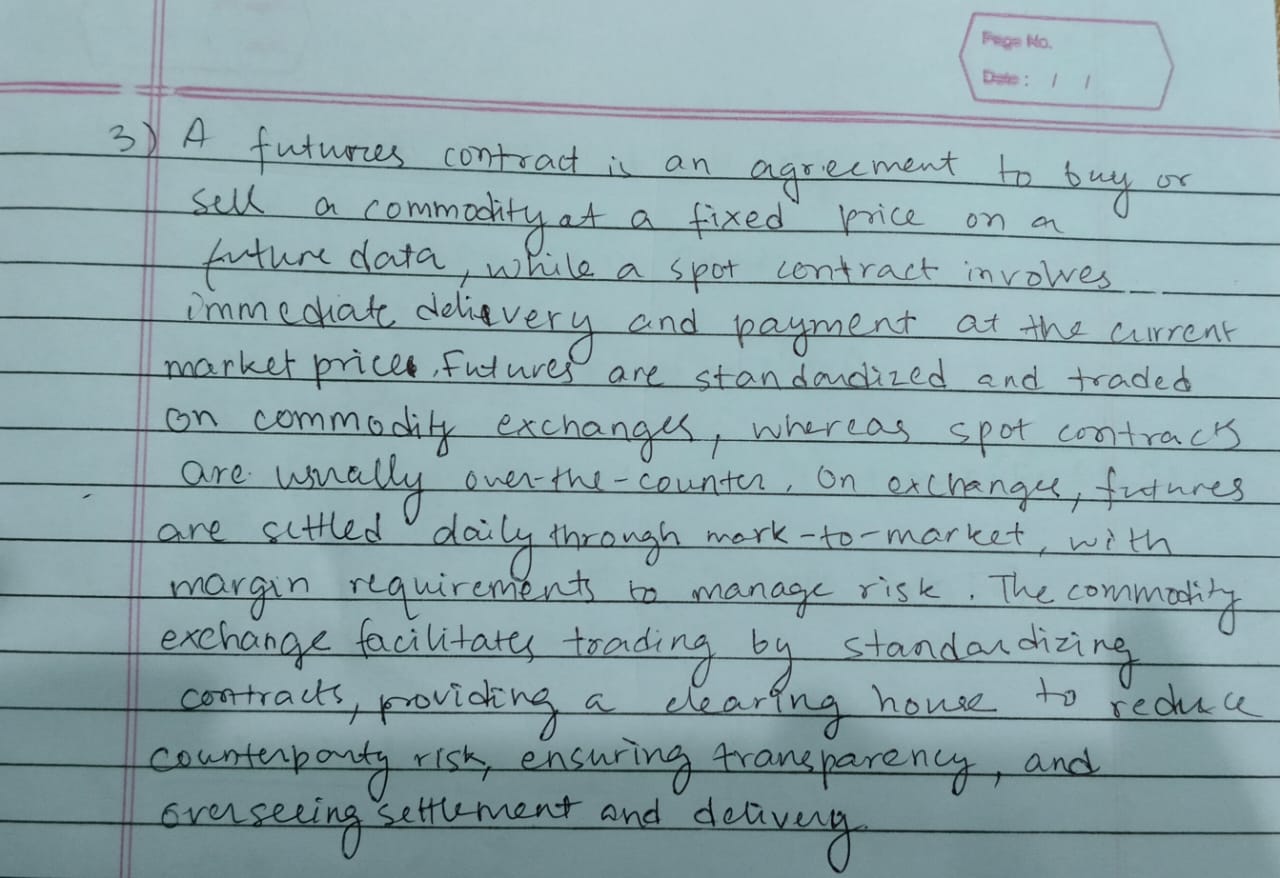 Page No.
Date: / /
3) A futures contract is an agreement to buy or
sell a commodity at a fixed price on a
future data, while a spot contract involves
immediate delivery and payment at the current
market price. Futures are standardized and traded
on commodity exchanges, whereas spot contracts
are usually over-the-counter. On exchanges, futures
are settled daily through mark-to-market, with
margin requirements to manage risk. The commodity
exchange facilitates trading by standardizing
contracts, providing a clearing house to reduce
counterparty risk, ensuring transparency, and
overseeing settlement and delivery.